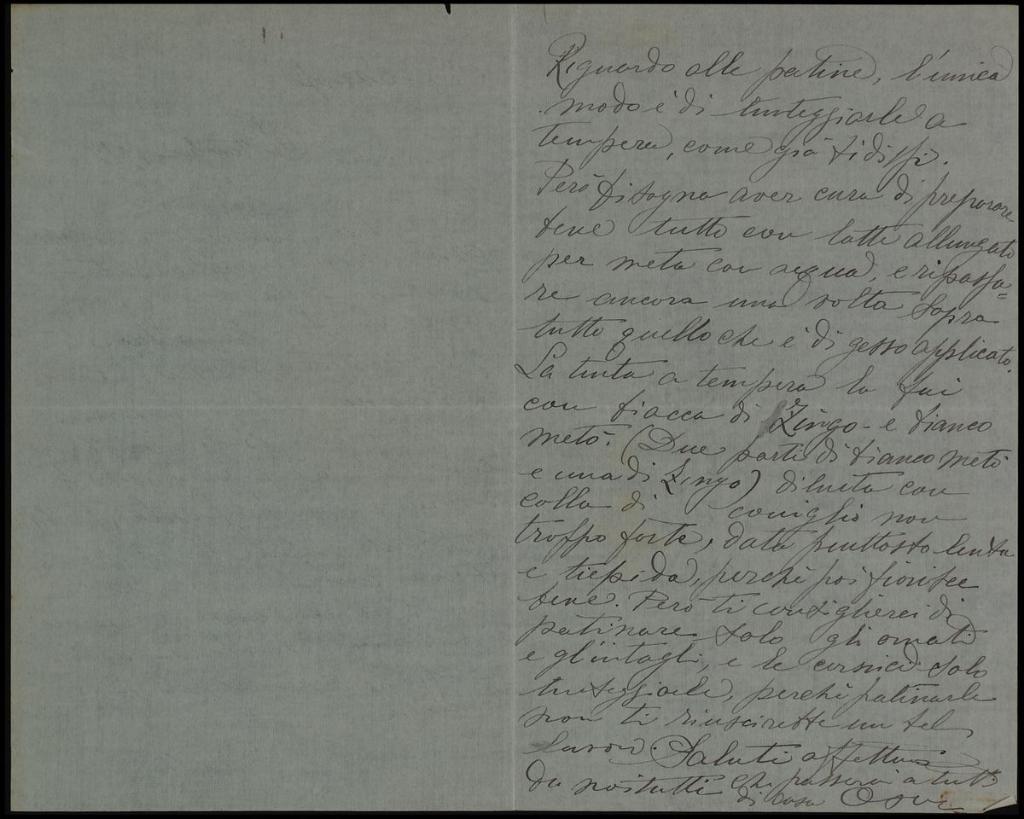 Riguardo alle patine, l'unico
modo è di tinteggiarle a
tempera, come già ti dissi.
Però bisogna aver cura di preparare
bene tutto con latte allungato
per metà con acqua, e ripassa=
re ancora una volta sopra
tutto quello che è di gesso applicato.
La tinta a tempera la fai
con biacca di Zingo e bianco
metò. (Due parti di bianco metò
e una di Zingo) diluita con
colla di coniglio non
troppo forte, data piuttosto lenta
e tiepida, perchè poi fiorisce
bene. Però ti consiglierei di
patinare solo gli ornati
e gl'intagli, e le cornici solo
tinteggiarle, perchè patinarle
non ti riuscirebbe un bel
lavoro. Saluti affettuosi
da noi tutti che passerai a tutti
di casa